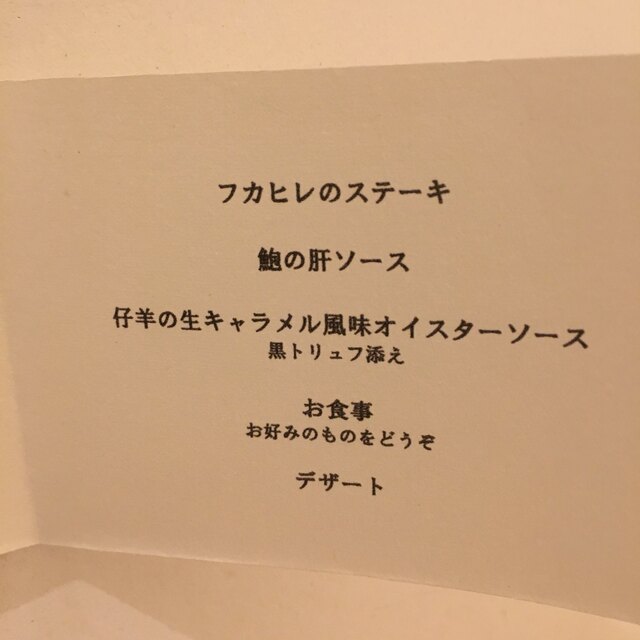 フカヒレのステーキ
鮑の肝ソース
仔羊の生キャラメル風味オイスターソース
黒トリュフ添え
お食事
お好みのものをどうぞ
デザート